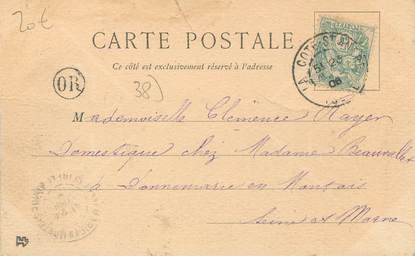 20€
CARTE POSTALE
Ce côté est exclusivement réservé à l'adresse
LA COTE-ST-AN
OR
38)
Mademoiselle Clémence Rayer
Domestique chez Madame
à Donnemarie en Montois
Seine et Marne